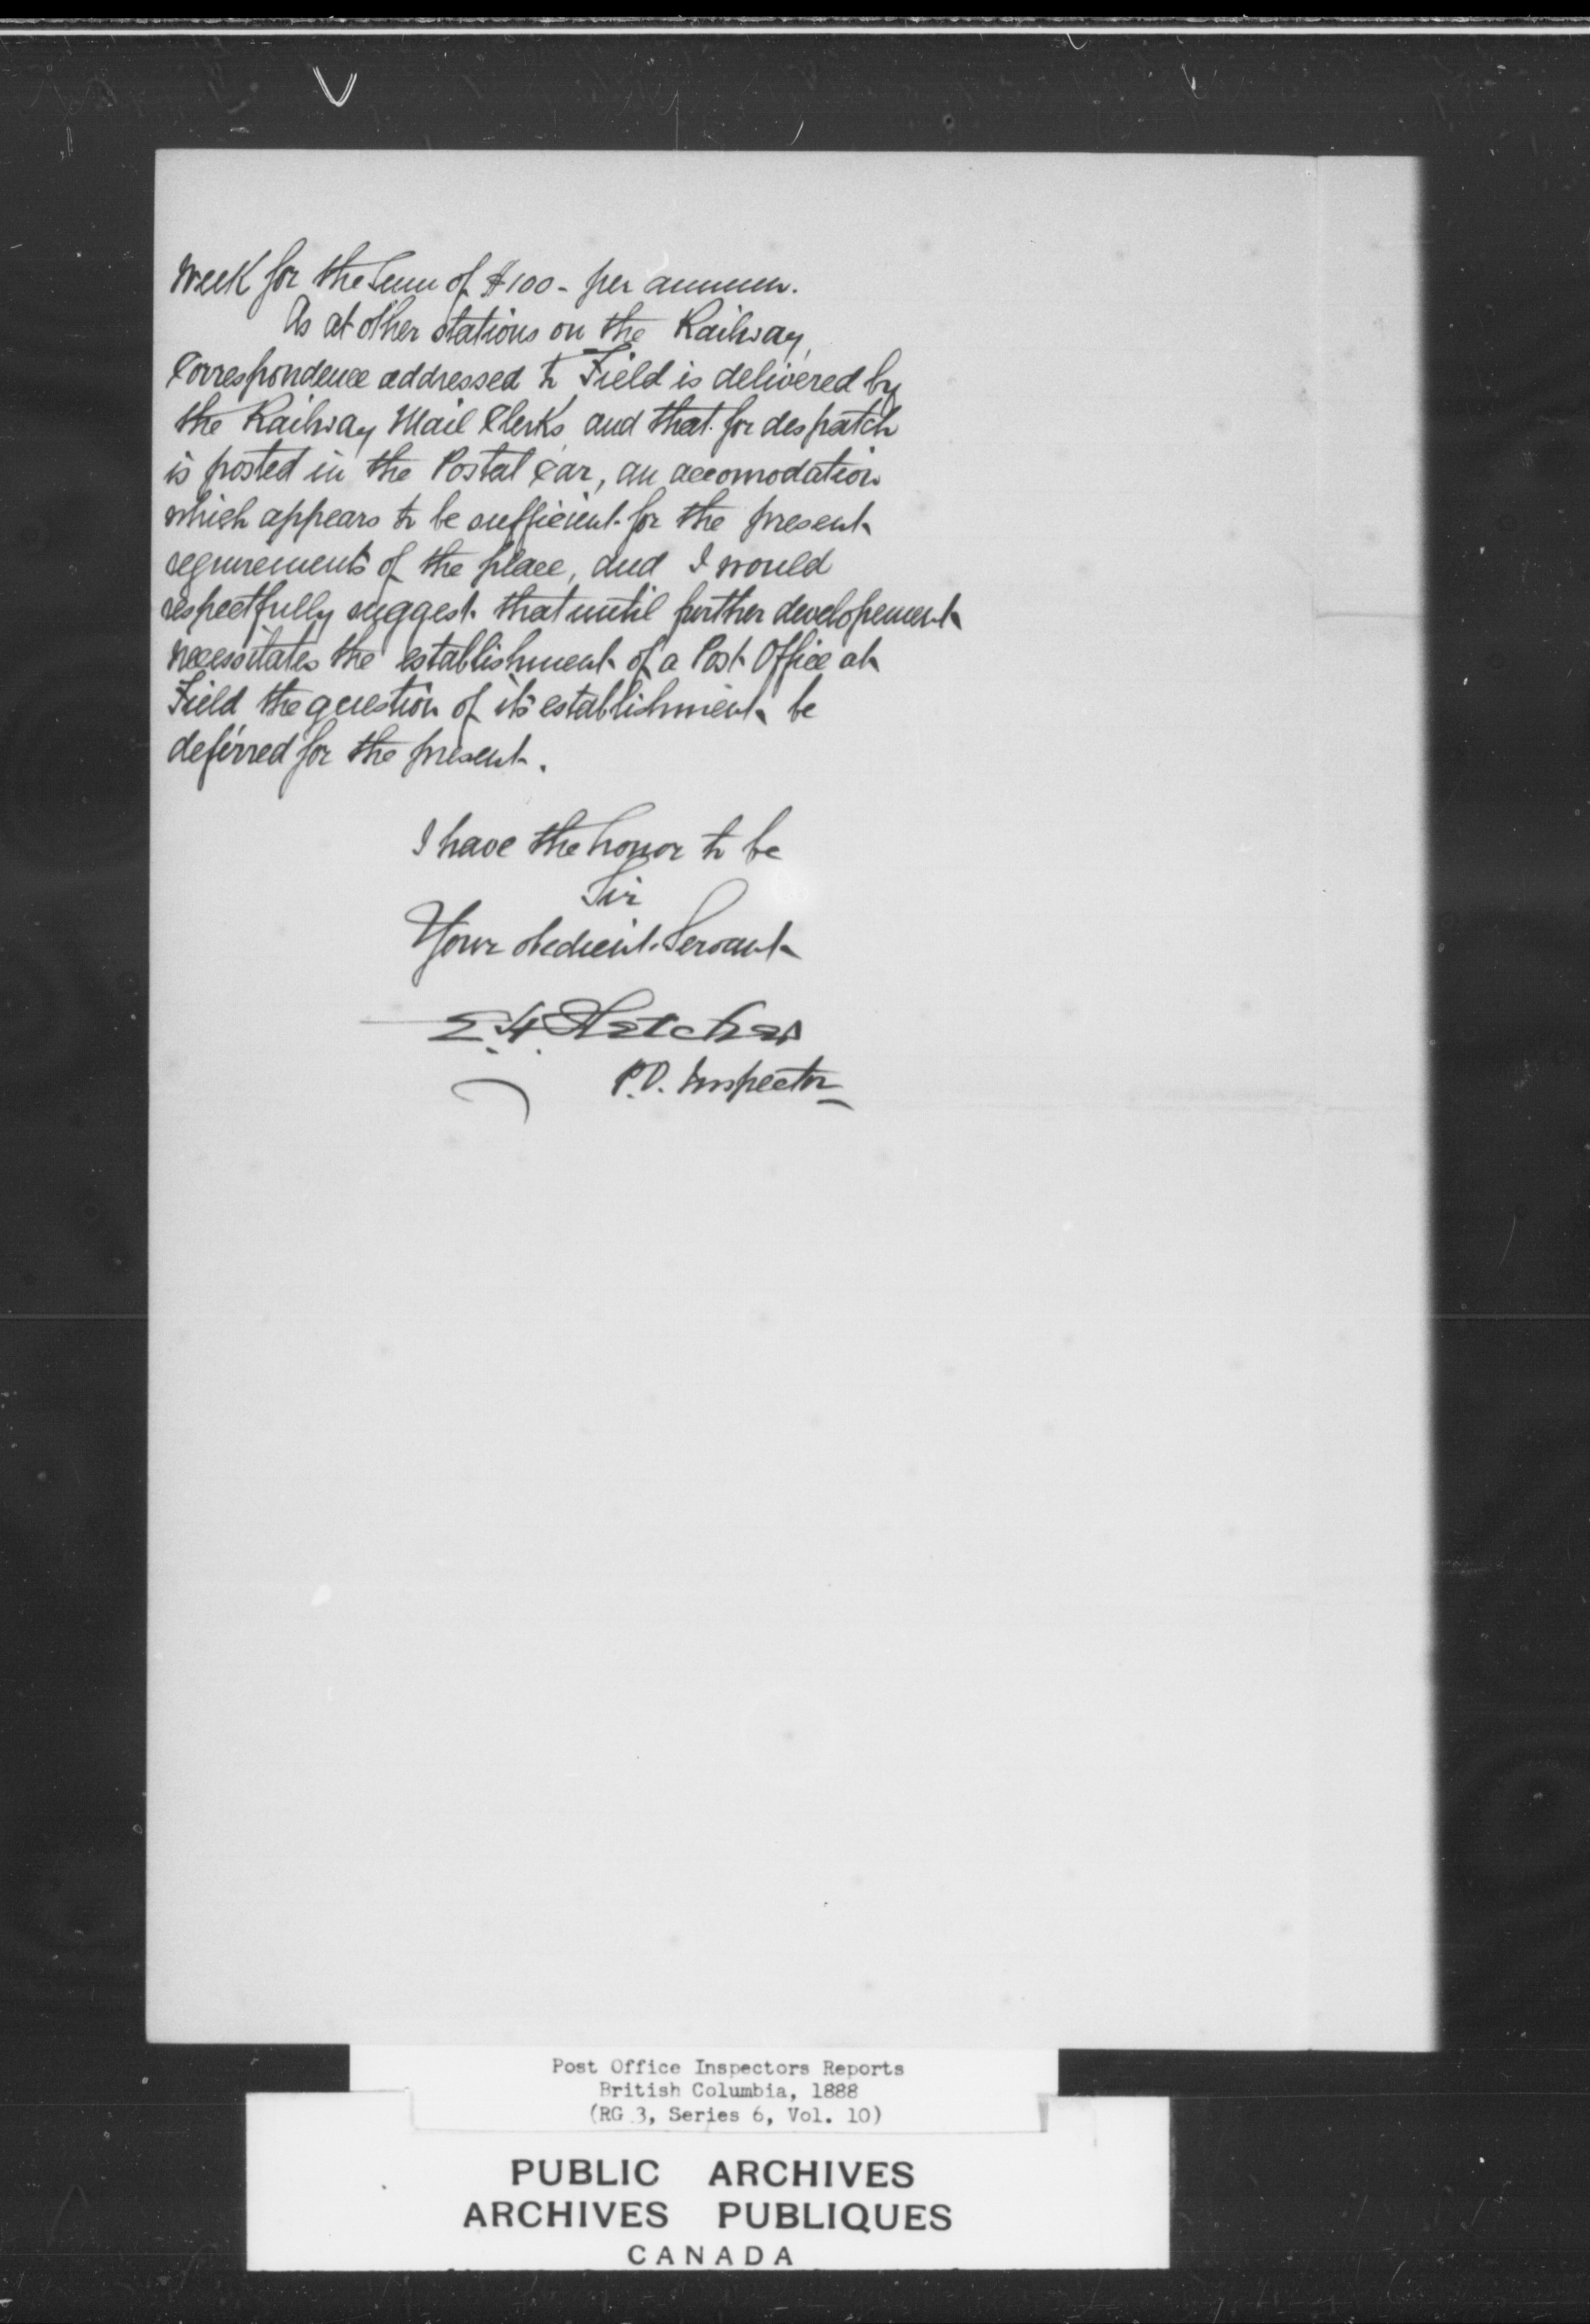 week for the Sum of $100- per annum.
As at other stations on the Railway,
Correspondence addressed to Field is delivered by
the Railway Mail Clerks and that for despatch
is posted in the Postal Car, an accomodation
which appears to be sufficient for the present
requirements of the place, and I would
respectfully suggest that until further developement
necessitates the establishment of a Post Office at
Field the question of its establishment be
deferred for the present.
I have the honor to be
Sir
Your obedient Servant
E. H. Fletcher
P.O. Inspector
Post Office Inspectors Reports
British Columbia, 1888
(RG 3, Series 6, Vol. 10)
PUBLIC ARCHIVES
ARCHIVES PUBLIQUES
CANADA